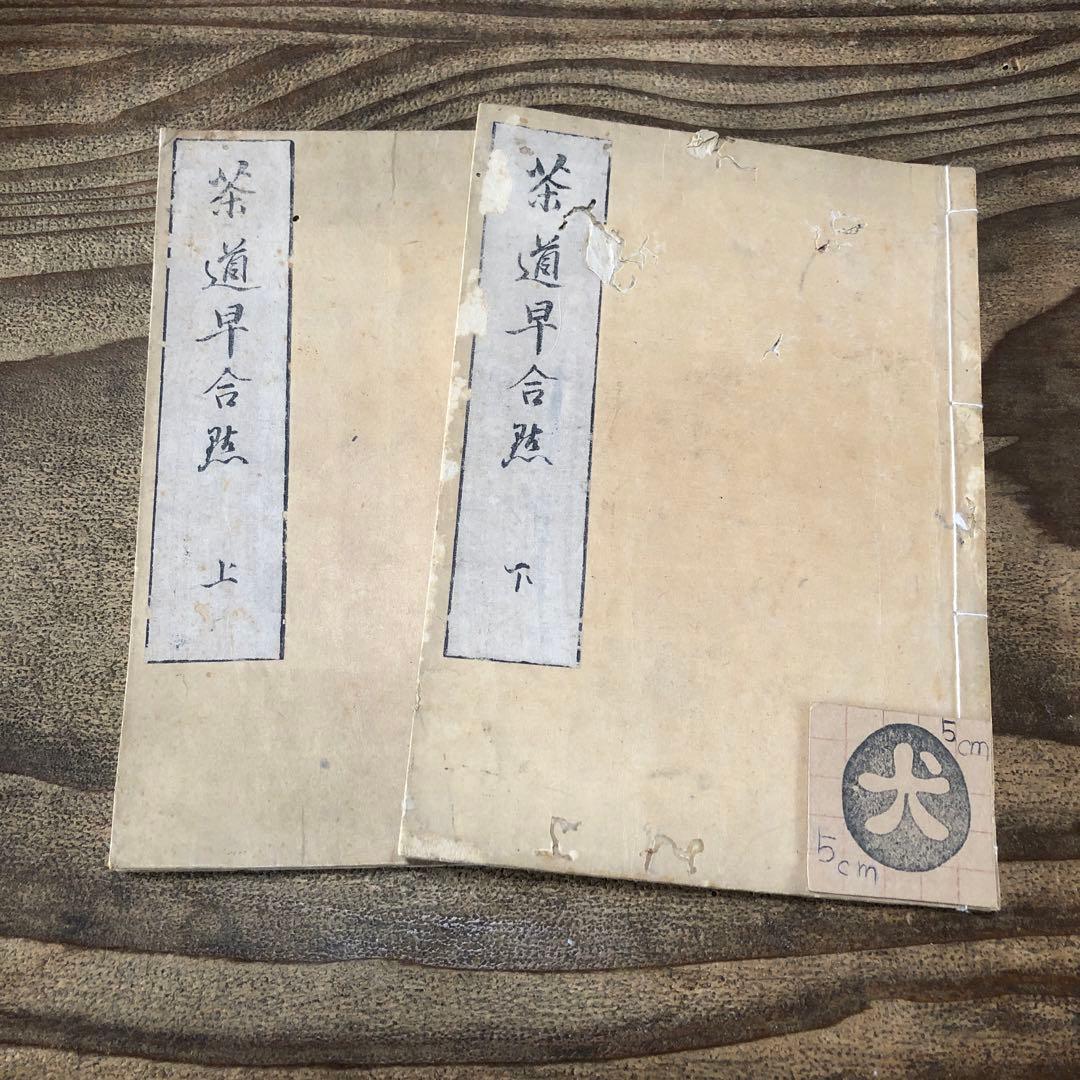 茶道早合点
上
茶道早合点
下
犬
5cm
5cm